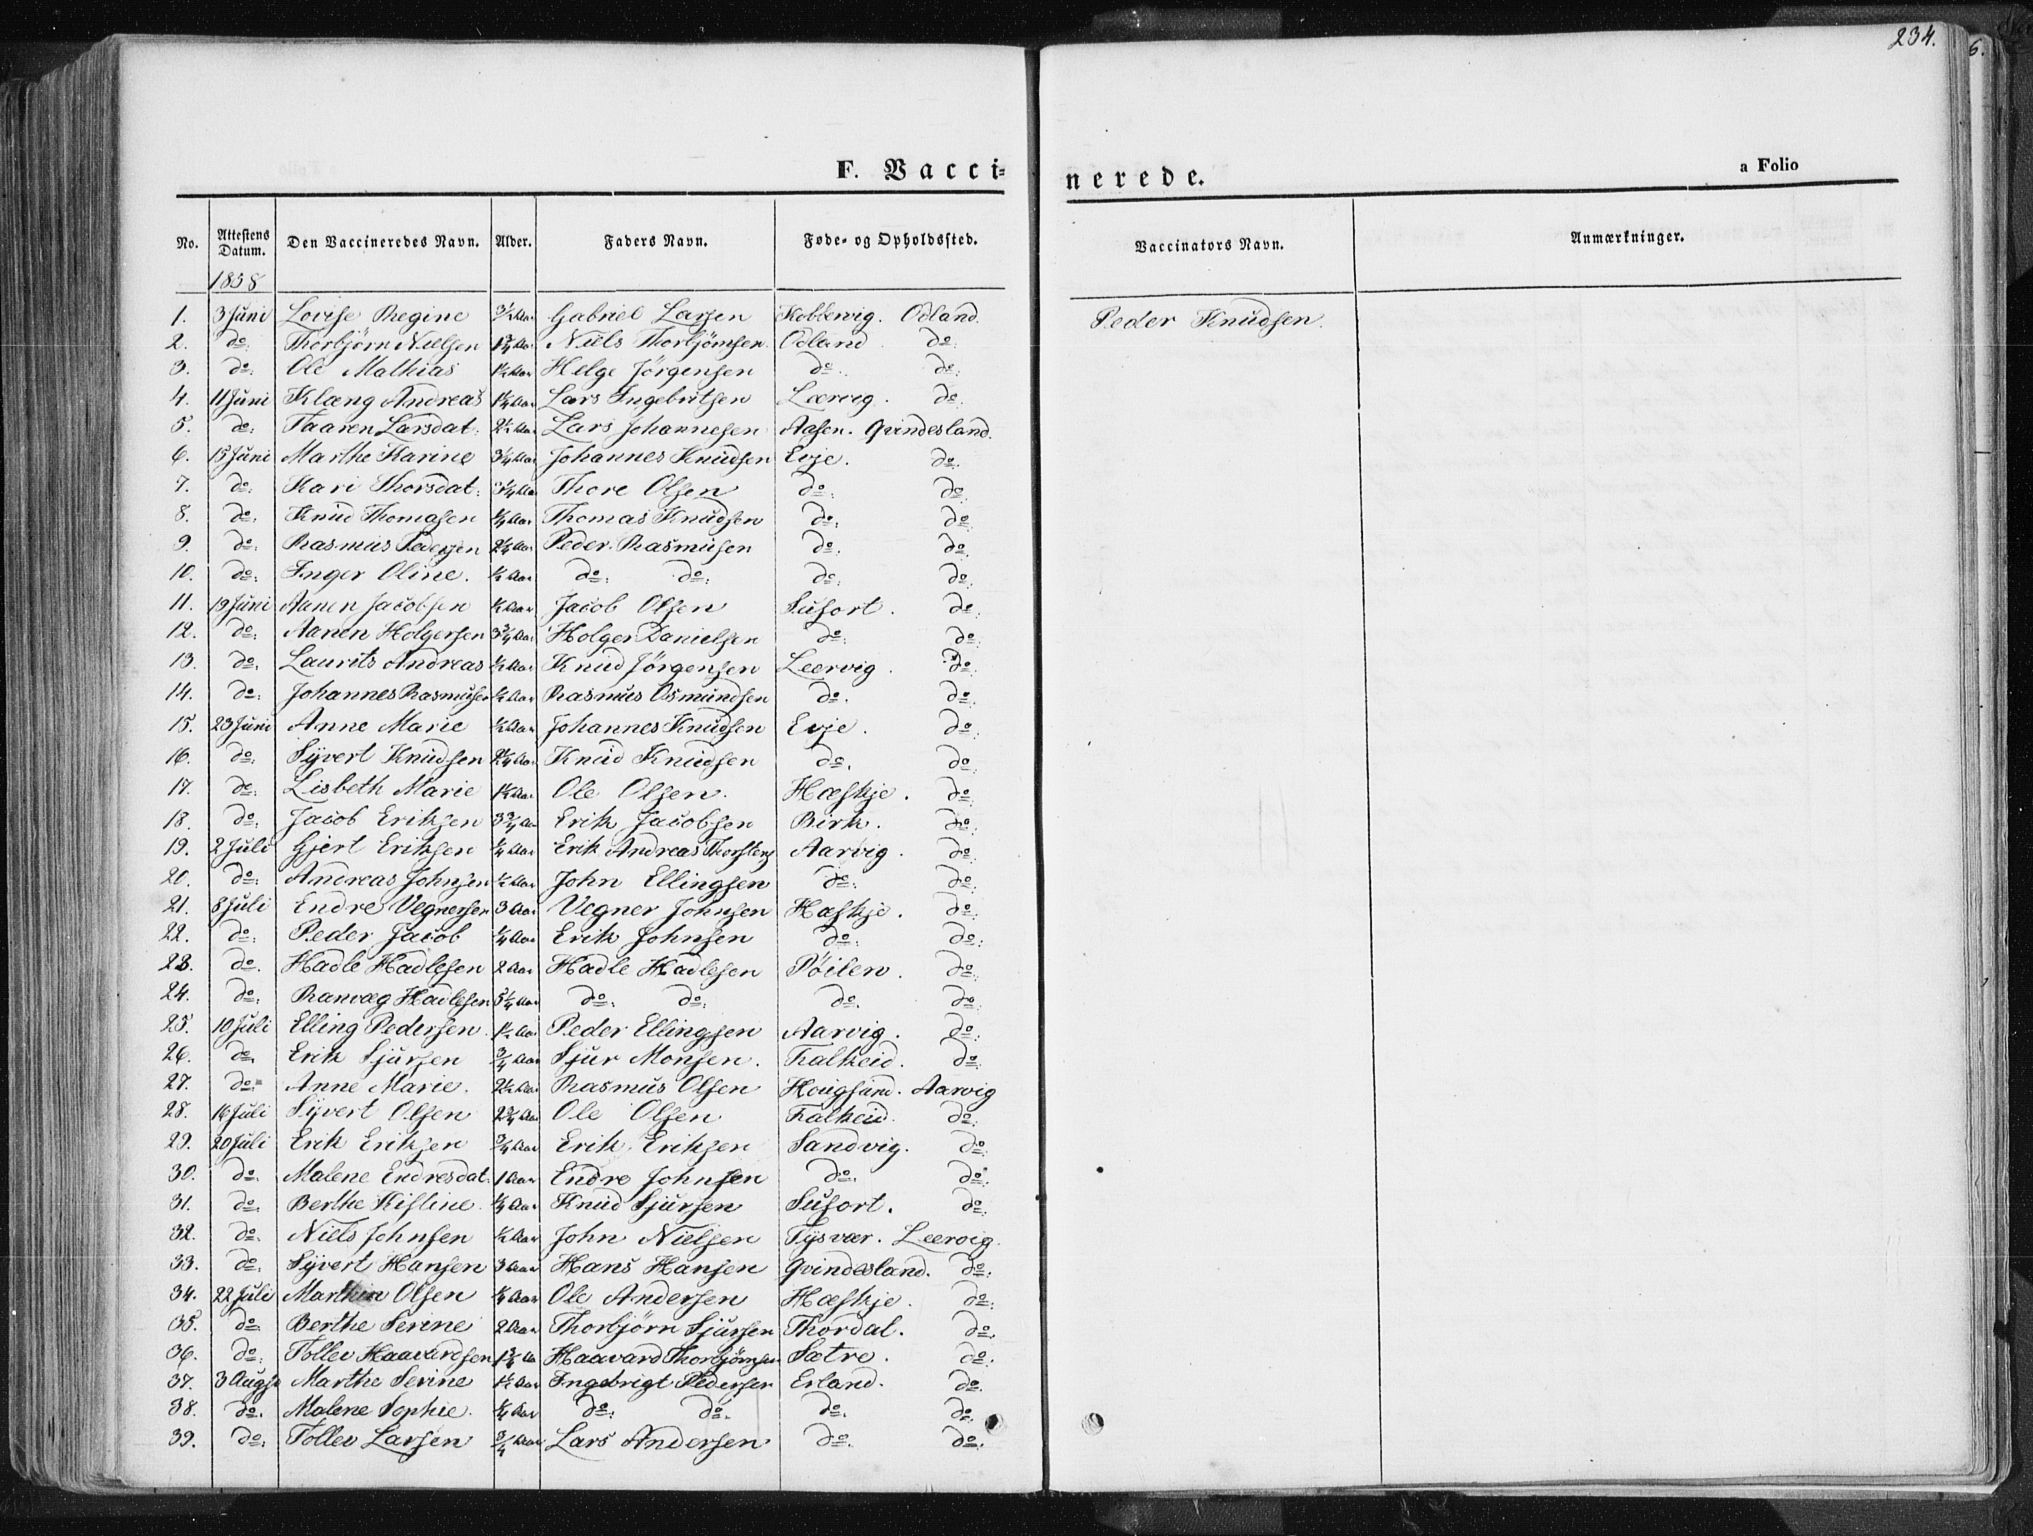 234.
6.
F. Vacci-
nerede.
a Folio
No. Attestens Datum. Den Vaccineredes Navn. Alder. Faders Navn. Føde- og Opholdssted. Vaccinators Navn. Anmærkninger.
1858
1. 3 Juni Lovise Regine Aar Gabriel Larsen Kobbevig. Odland. Peder Knudsen.
2. do: Thorbjørn Nielsen 1¾ Aar Niels Thorbjørnsen Odland do:
3. do: Ole Mathias 1½ Aar Helge Jörgensen do: do:
4. 11 Juni Klæng Andreas 1¼ Aar Lars Ingebritsen Leervig. do:
5. do: Taaren Larsdat: 2½ Aar Lars Johannesen Aasen. Qvindesland.
6. 15 Juni Marthe Karine 3¼ Aar Johannes Knudsen Evje. do:
7. do: Kari Thorsdat: Aar Thore Olsen do: do:
8. do: Knud Thomasen ¼ Aar Thomas Knudsen do: do:
9. do: Rasmus Pedersen 2¼ Aar Peder Rasmusen do: do:
10. do: Inger Oline. ½ Aar do: do: do: do:
11. 19 Juni Aanen Jacobsen ½ Aar Jacob Olsen Susort. do:
12. do: Aanen Holgersen 3¾ Aar Holger Danielsen do: do:
13. do: Laurits Andreas ½ Aar Knud Jörgensen Leervig. do:
14. do: Johannes Rasmusen ½ Aar Rasmus Osmundsen do: do:
15. 23 Juni Anne Marie ½ Aar Johannes Knudsen Evje. do:
16. do: Syvert Knudsen 2¼ Aar Knud Knudsen do: do:
17. do: Lisbeth Marie 1½ Aar Ole Olsen. Hæskje. do:
18. do: Jacob Eriksen 3¾ Aar Erik Jacobsen Birk. do:
19. 2 Juli Gjert Eriksen ¼ Aar Erik Andreas Thorstens Aarvig. do:
20. do: Andreas Johnsen ½ Aar John Ellingsen do: do:
21. 8 Juli Endre Vegnersen 3 Aar Vegner Johnsen Hæskje. do:
22. do: Peder Jacob ¼ Aar Erik Johnsen do: do:
23. do: Hadle Hadlesen 2 Aar Hadle Hadlesen Pöilen. do:
24. do: Ranvæg Hadlesen Aar do: do: do: do:
25. 10 Juli Elling Pedersen 1½ Aar Peder Ellingsen Aarvig. do:
26. do: Erik Sjursen ¾ Aar Sjur Monsen. Falkeid. do:
27. do: Anne Marie. 2½ Aar Rasmus Olsen Hougsund. Aarvig
28. 16 Juli Syvert Olsen 2¾ Aar Ole Olsen Falkeid. do:
29. 20 Juli Erik Eriksen ¾ Aar Erik Eriksen Sandvig. do:
30. do: Malene Endresdat: 1 Aar Endre Johnsen do: do:
31. do: Berthe Kistine ¼ Aar Knud Sjursen Susort. do:
32. do: Niels Johnsen ½ Aar John Nielsen Tysvær. Leervig.
33. do: Syvert Hansen 3 Aar Hans Hansen Qvindesland. do:
34. 22 Juli Marthin Olsen ¼ Aar Ole Andersen Hæskje. do:
35. do: Berthe Serine 2 Aar Thorbjörn Sjursen Thordal. do:
36. do: Tollev Haavardsen Aar Haavard Thorbjörnsen Sætre. do:
37. 3 Augst Marthe Serine 1½ Aar Ingebrigt Pedersen Erland. do:
38. do: Malene Sophie. ¼ Aar do: do: do: do:
39. do: Tollev Larsen ¾ Aar Lars Andersen do: do: